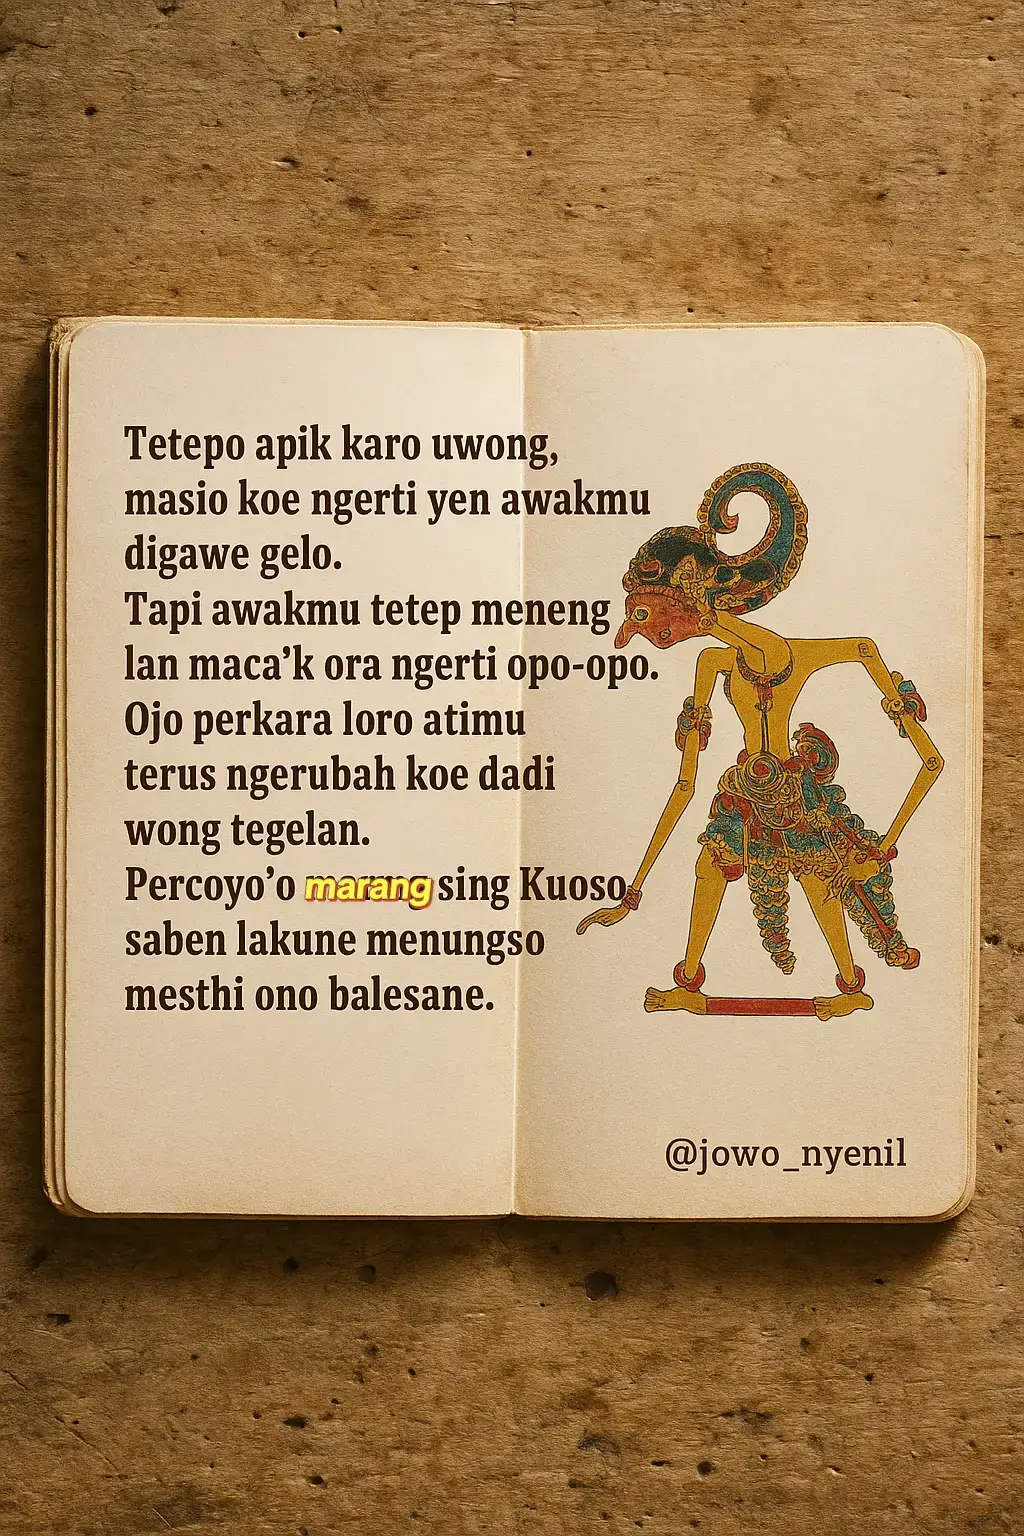 Tetepo apik karo uwong,
masio koe ngerti yen awakmu
digawe gelo.
Tapi awakmu tetep meneng
lan maca’k ora ngerti opo-opo.
Ojo perkara loro atimu
terus ngerubah koe dadi
wong tegelan.
Percoyo’o marang sing Kuoso,
saben lakune menungso
mesthi ono balesane.
@jowo_nyenil